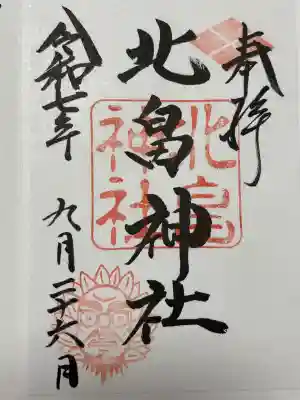 奉拝
北畠神社
北畠
神社
令和七年
九月二十六日